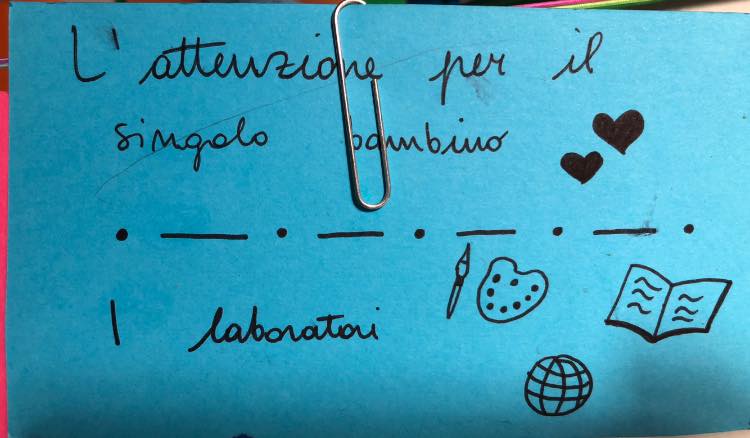 L'attenzione per il
singolo bambino
I laboratori